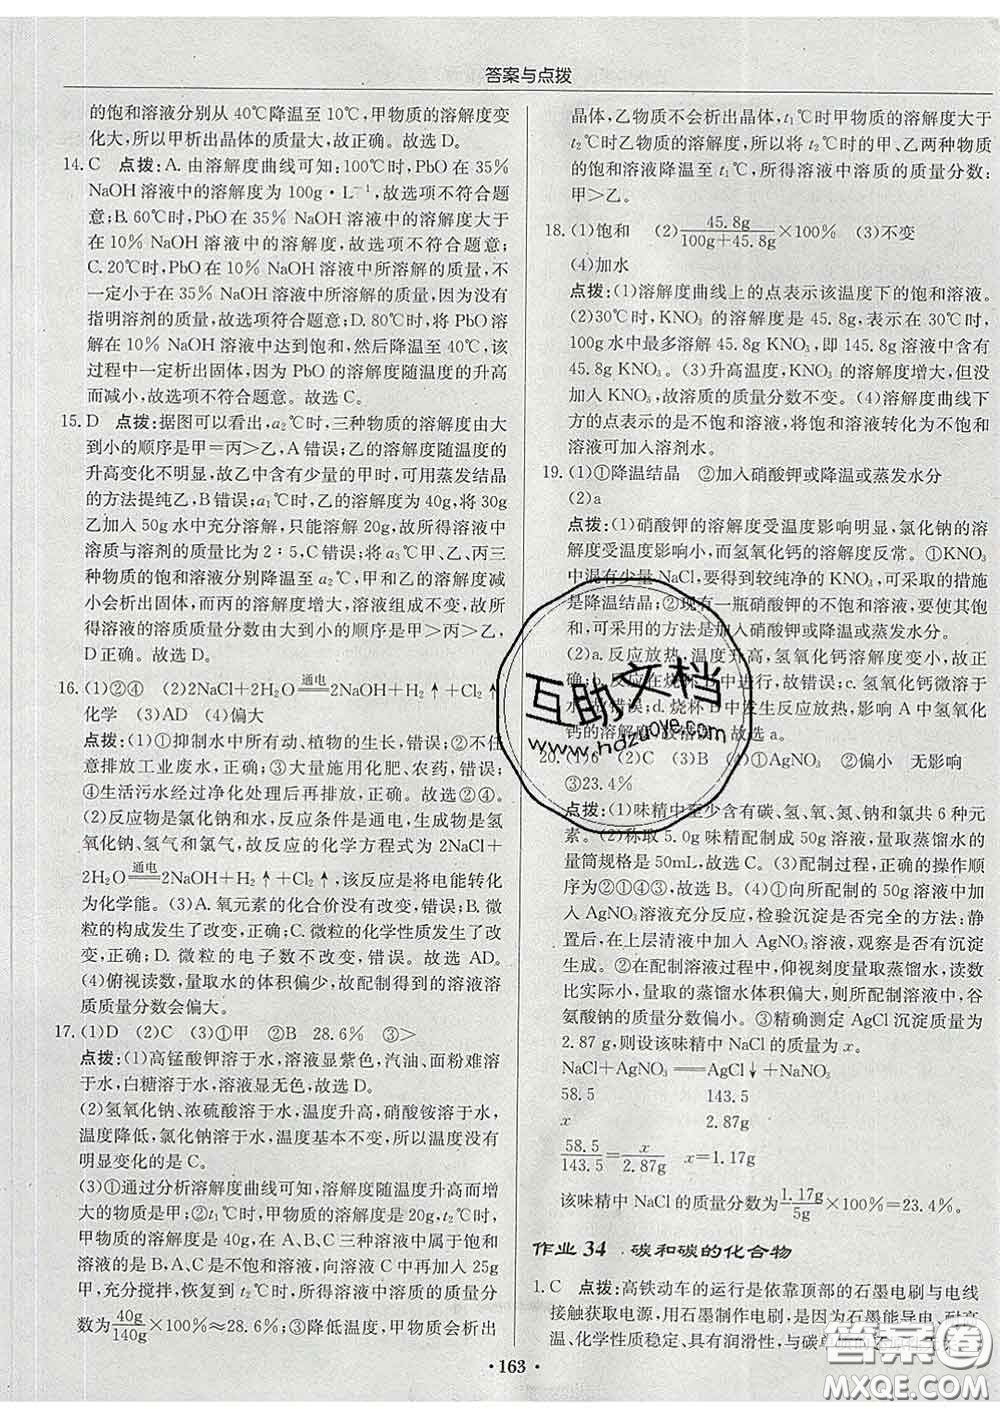 答案与点拨
的饱和溶液分别从 40℃降温至 10℃,甲物质的溶解度变
化大,所以甲析出晶体的质量大,故正确。故选 D。
14. C 点拨:A. 由溶解度曲线可知:100℃时,PbO 在 35%
NaOH 溶液中的溶解度为 100g·L⁻¹,故选项不符合题
意;B. 60℃时,PbO 在 35% NaOH 溶液中的溶解度大于
在 10% NaOH 溶液中的溶解度,故选项不符合题意;
C. 20℃时,PbO 在 10% NaOH 溶液中所溶解的质量,不
一定小于在 35% NaOH 溶液中所溶解的质量,因为没有
指明溶剂的质量,故选项符合题意;D. 80℃时,将 PbO
溶解在 10% NaOH 溶液中达到饱和,然后降温至 40℃,该
过程中一定析出固体,因为 PbO 的溶解度随温度的升高
而减小,故选项不符合题意。故选 C。
15. D 点拨:据图可以看出,a₂℃时,三种物质的溶解度由大
到小的顺序是甲=丙>乙,A 错误;乙的溶解度随温度的
升高变化不明显,故乙中含有少量的甲时,可用蒸发结晶
的方法提纯乙,B 错误;a₁℃时,乙的溶解度为 40g,将 30g
乙加入 50g 水中充分溶解,只能溶解 20g,故所得溶液中
溶质与溶剂的质量比为 2∶5,C 错误;将 a₃℃甲、乙、丙三
种物质的饱和溶液分别降温至 a₂℃,甲和乙的溶解度减
小会析出固体,而丙的溶解度增大,溶液组成不变。故所
得溶液的溶质质量分数由大到小的顺序是甲>丙>乙,
D 正确。故选 D。
16. (1)②④ (2)2NaCl+2H₂O 通电 2NaOH+H₂↑+Cl₂↑
化学 (3)AD (4)偏大
点拨:(1)①抑制水中所有动、植物的生长,错误;②不任
意排放工业废水,正确;③大量施用化肥、农药,错误;
④生活污水经过净化处理后再排放,正确。故选②④。
(2)反应物是氯化钠和水,反应条件是通电,生成物是氢
氧化钠、氢气和氯气,故反应的化学方程式为 2NaCl+
2H₂O 通电 2NaOH+H₂↑+Cl₂↑,该反应是将电能转化
为化学能。(3)A. 氧元素的化合价没有改变,错误;B. 微
粒的构成发生了改变,正确;C. 微粒的化学性质发生了改
变,正确;D. 微粒的电子数不改变,错误。故选 AD。
(4)俯视读数,量取水的体积偏少,故配制得到的溶液溶
质质量分数会偏大。
17. (1)D (2)C (3)①甲 ②B 28.6% ③>
点拨:(1)高锰酸钾溶于水,溶液显紫色,汽油、面粉难溶
于水,白糖溶于水,溶液显无色,故选 D。
(2)氢氧化钠、浓硫酸溶于水,温度升高,硝酸铵溶于水,
温度降低,氯化钠溶于水,温度基本不变,所以温度没有
明显变化的是 C。
(3)①通过分析溶解度曲线可知,溶解度随温度升高而增
大的物质是甲;②t₁℃时,甲物质的溶解度是 20g,t₂℃时,
甲物质的溶解度是 40g,在 A、B、C 三种溶液中属于饱和
溶液的是 B,A、C 是不饱和溶液,向溶液 C 中加入 25g
甲,充分搅拌,恢复到 t₂℃时,所得溶液中溶质的质量分
数为 40g/140g ×100%≈28.6%;③降低温度,甲物质会析出
晶体,乙物质不会析出晶体,t₁℃时甲物质的溶解度大于
t₂℃时乙物质的溶解度,所以将 t₂℃时的甲、乙两种物质
的饱和溶液降温至 t₁℃,所得溶液中溶质的质量分数:
甲>乙。
18. (1)饱和 (2) 45.8g/(100g+45.8g) ×100% (3)不变
(4)加水
点拨:(1)溶解度曲线上的点表示该温度下的饱和溶液。
(2)30℃时,KNO₃ 的溶解度是 45.8g,表示在 30℃时,
100g 水中最多溶解 45.8g KNO₃,即 145.8g 溶液中含有
45.8g KNO₃。(3)升高温度,因为没有加入 KNO₃,但没
加入溶剂,故溶质的质量分数不变。(4)溶解度曲线下
方的点表示的是不饱和溶液,将饱和溶液转化为不饱和
溶液可加入溶剂水。
19. (1)①降温结晶 ②加入硝酸钾或降温或蒸发水分
(2)a
点拨:(1)硝酸钾的溶解度受温度影响明显,氯化钠的溶
解度受温度影响小,而氢氧化钙的溶解度反常。①KNO₃
中混有少量 NaCl,要得到较纯净的 KNO₃,可采用的措施
是降温结晶;②现有一瓶硝酸钾的不饱和溶液,使之变饱
和,可采用的方法是加入硝酸钾或降温或蒸发水分。
(2)a. 反应放热,温度升高,氢氧化钙溶解度变小,故正
确;b. 反应在烧杯 B 中进行,故错误;c. 氢氧化钙微溶于
水,故错误;d. 烧杯 B 中发生反应放热,影响 A 中氢氧化
钙的溶解度,故错误。故选 a。
20. (1)6 (2)C (3)B (4)①AgNO₃ ②偏小 无影响
③23.4%
点拨:(1)味精中至少含有碳、氢、氧、氮、钠和氯共 6 种元
素。(2)称取 5.0g 味精配制成 50g 溶液,量取蒸馏水的
量筒规格是 50mL,故选 C。(3)配制过程,正确的操作顺
序为②①④③,故选 B。(4)①向所配制的 50g 溶液中加
入 AgNO₃ 溶液充分反应,检验沉淀是否完全的方法:静
置后,在上层清液中加入 AgNO₃ 溶液,观察是否有沉淀
生成。②在配制溶液过程中,仰视刻度量取蒸馏水,读数
比实际小,量取的蒸馏水体积偏大,所配制溶液中,谷
氨酸钠的质量分数偏小。③精确测定 AgCl 沉淀质量为
2.87 g,则设该味精中 NaCl 的质量为 x。
NaCl+AgNO₃══AgCl↓+NaNO₃
58.5 143.5
x 2.87g
58.5/143.5 = x/2.87g x=1.17g
该味精中 NaCl 的质量分数为 1.17g/5g ×100%=23.4%。
作业 34 碳和碳的化合物
1. C 点拨:高铁动车的运行是依靠顶部的石墨电刷与电线
接触获取电源,用石墨制作电刷,是因为石墨能导电、耐高
温、化学性质稳定、具有润滑性,与碳单
• 163 •
互助文档
www.hdzuoye.com
答案圈
MXQE.COM